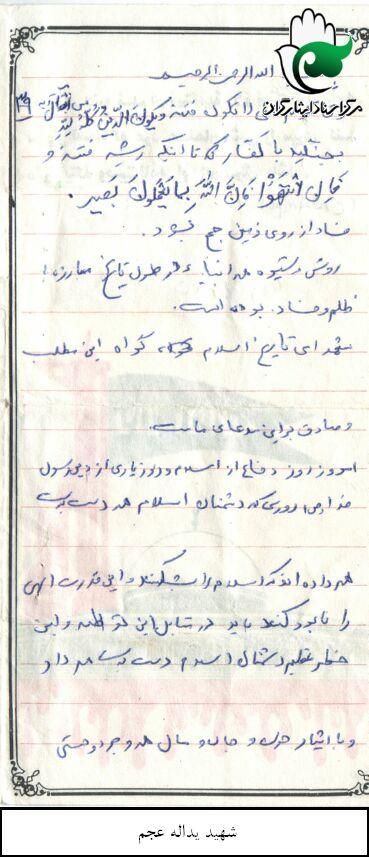 مرکز اسناد ایثارگران
الله الرحمن الرحیم
لاتکون فتنة ویکون الدین کله لله
۳۹
بجنگید با کفار تا آنکه ریشه فتنه و
فان انتهوا فان الله بما یعملون بصیر.
فساد از روی زمین جمع شود.
روش و شیوه همه انبیاء در طول تاریخ مبارزه با
ظلم و فساد بوده است.
شهدای تاریخ اسلام گواه این مطلب
و صادق بر این مدعای ماست.
امروز روز دفاع از اسلام و روز یاری از دین رسول
خدا (ص) روزی که دشمنان اسلام همه دست بدست
هم داده اند که اسلام را شکنند و این قدرت الهی
را نابود کنند باید در مقابل این و این
خطر عظیم دشمنان اسلام دست بدست هم داد
و با ایثار خون و جان و مال همه وجود و هستی
شهید یداله عجم